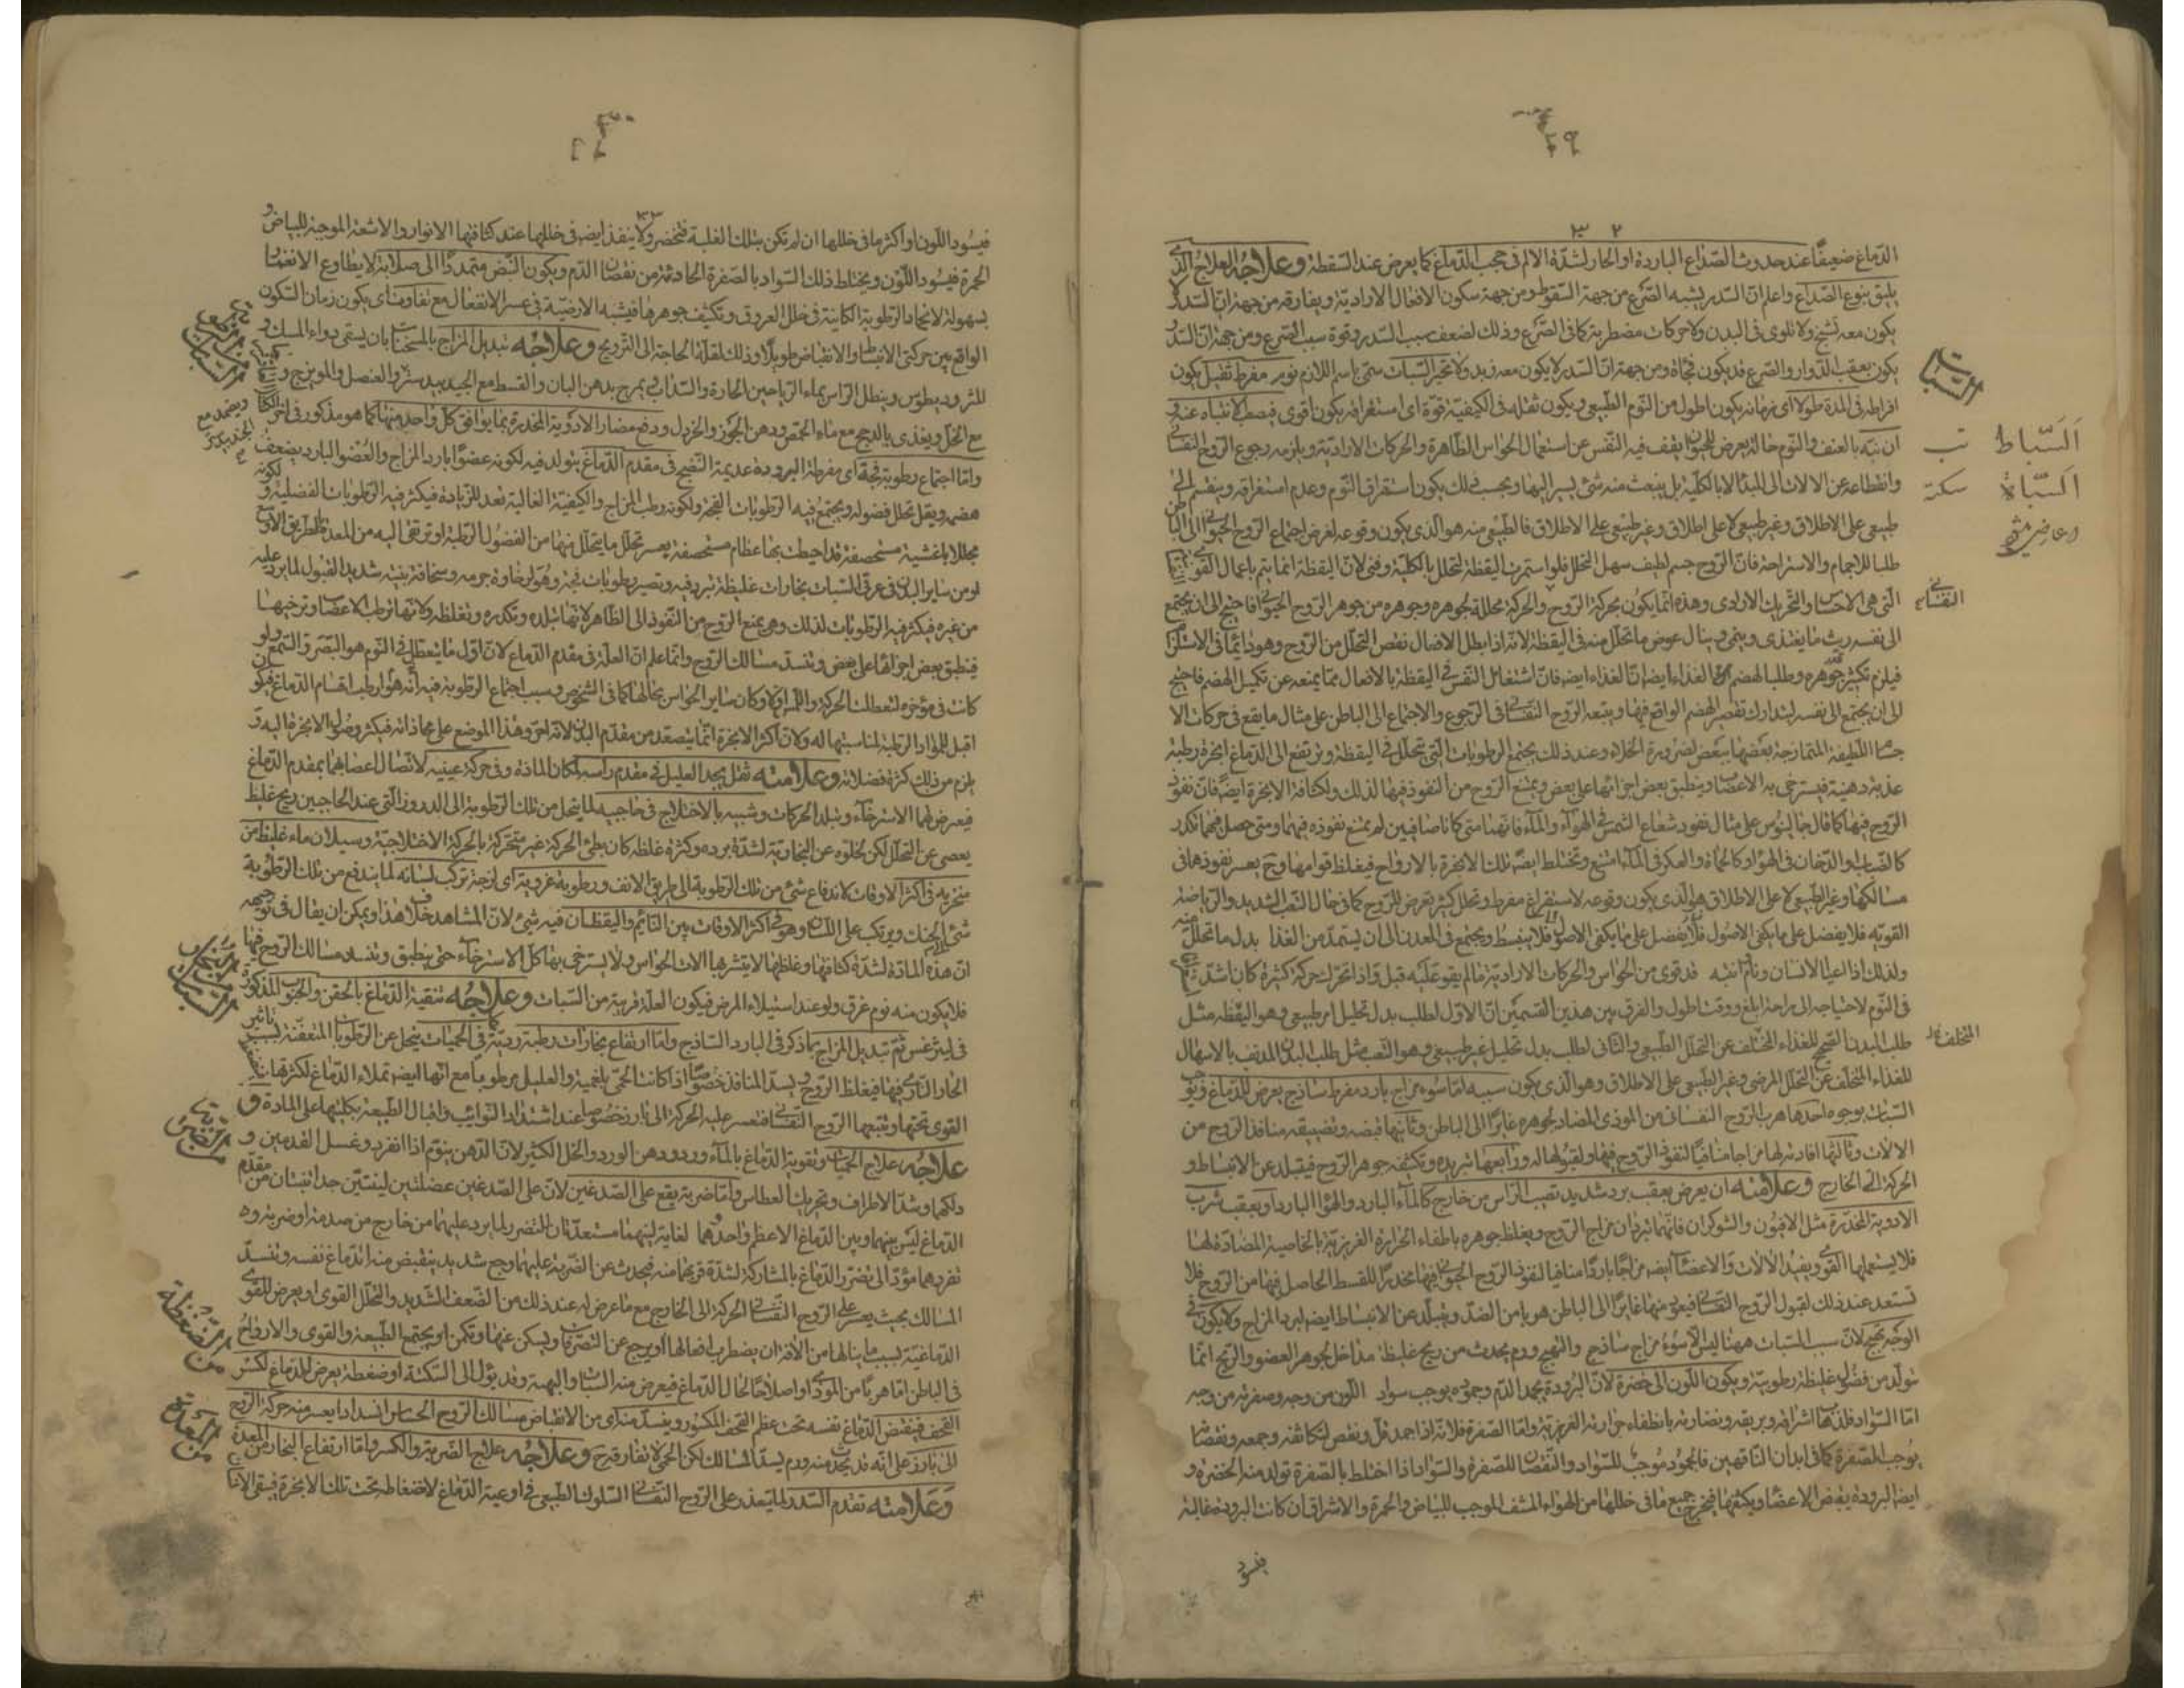 ٣٢
الدماغ ضعيفا عند حدوث الصداع الباردة او الحار لشدة الالم فى حجب الدماغ كما يعرض عند السقطة وعلاجه العلاج الذى
يليق بنوع الصداع واعلم ان السدر يشبه الصرع من جهة السقوط ومن جهة سكون الافعال الارادية ويفارقه من جهة ان السدر لا
يكون معه تشنج ولا تلوى فى البدن ولا حركات مضطربة كما فى الصرع وذلك لضعف سبب السدر وقوة سبب الصرع ومن جهة ان السدر
يكون بعقب الدوار والصرع قد يكون فجاة ومن جهة ان السدر لا يكون معه زبد ولا نخير السبات سمى باسم اللازم نوم مفرط ثقيل يكون
السبات
افراطه فى المدة طولا اى زمانه يكون اطول من النوم الطبيعى ويكون ثقله فى الكيفية قوة اى استغراقه يكون اقوى فيصعب الانتباه عنه و
ان نبه بالعنف والنوم حالة يعرض للحيوان يقف فيه النفس عن استعمال الحواس الظاهرة والحركات الارادية ويلزمه رجوع الروح النفسانى
السباط تب
السباة سكتة
وانقطاعه عن الالات الى المبدا لا بالكلية بل ينبعث منه شئ يسير اليها وبحسب ذلك يكون استغراق النوم وعدم استغراقه وينقسم الى
طبيعى على الاطلاق وغير طبيعى لا على اطلاق وغير طبيعى على الاطلاق فالطبيعى منه هو الذى يكون وقوعه لغرض اجتماع الروح الحيوانى الى الباطن
طلبا للاجمام والاستراحة فان الروح جسم لطيف سهل التحلل فلو استمرت اليقظة لتحلل بالكلية وفنى لان اليقظة انما يتم باعمال القوى
النفسانى
التى هى الاحساس والتحريك الارادى وهذه انما يكون بحركة الروح والحركة محللة لجوهره وجوهره من جوهر الروح الحيوانى فاحتيج الى ان يجتمع
الى نفسه ريث ما يغتذى وينمى وينال عوض ما تحلل منه فى اليقظة لانه اذا بطل الافعال نقص التحلل من الروح وهو دائما فى الاستمداد
فيلزم تكثير جوهره وطلب الهضم الغذاء ايضا ان الغذاء ايضا فان اشتغال النفس فى اليقظة بالافعال مما يمنعه عن تكميل الهضم فاحتيج
الى ان يجتمع الى نفسه ليتدارك تقصير الهضم الواقع فيها ويتبعه الروح النفسانى فى الرجوع والاجتماع الى الباطن على مثال ما يقع فى حركات الا
جسام اللطيفة المتمازجة بعضها ببعض لضرورة الخلاء وعند ذلك يجتمع الرطوبات التى تتحلل فى اليقظة ويرتفع الى الدماغ ابخرة رطبة
عذبة دهنية فيسترخى به الاعصاب وينطبق بعض اجزائها على بعض ويمتنع الروح من النفوذ فيها لذلك ولكثافة الابخرة ايضا فان نفوذ
الروح فيها كما قال جالينوس على مثال نفوذ شعاع الشمس فى الهواء والماء فانهما متى كانا صافيين لم يمتنع نفوذه فيهما ومتى حصل فيهما تكدر
كالضباب والدخان فى الهواء وكالحماة والعكر فى الماء امتنع وتختلط ايضا تلك الابخرة بالارواح فيغلظ قوامها وح يعسر نفوذها فى
مسالكها وغير الطبيعى لا على الاطلاق هو الذى يكون وقوعه لاستفراغ مفرط وتحلل كثير يعرض للروح كما فى حال التعب الشديد والرياضة
القوية فلا يفضل على ما يكفى الاصول فلا ينبسط ويجتمع فى المعدن الى ان يستمد من الغذا بدل ما تحلل
ولذلك اذا اعيا الانسان ونام انتبه قد قوى من الحواس والحركات الارادية ما لم يقو عليه قبل واذا تحرك حركة كثيرة كان اشد
فى النوم لاحتياجه الى راحة ابلغ ووقت اطول والفرق بين هذين القسمين ان الاول لطلب بدل تحليل امر طبيعى وهو اليقظة مثل
المتخلف
طلب البدن الصحيح للغذاء المتخلف عن التحلل الطبيعى والثانى لطلب بدل تحليل غير طبيعى وهو التعب مثل طلب البدن المدنف بالاسهال
للغذاء المتخلف عن التحلل المرضى وغير الطبيعى على الاطلاق وهو الذى يكون سببه اما سوء مزاج بارد مفرط ساذج يعرض للدماغ ويوجب
السبات بوجوه احدها هرب الروح النفسانى من الموذى المضاد لجوهره غايرا الى الباطن وثانيها قبضه وتضييقه منافذ الروح من
الالات وثالثها افادته لها مزاجا منافيا لنفوذ الروح فيها ولقبولها له ورابعها تبريده وتكثيفه جوهر الروح فيتبلد عن الانبساط و
الحركة الى الخارج وعلامته ان يعرض بعقب برد شديد تصيب الراس من خارج كالماء البارد والهواء البارد او بعقب شرب
الادوية المخدرة مثل الافيون والشوكران فانهما يبردان مزاج الروح ويغلظ جوهره باطفاء الحرارة الغريزية بالخاصية المضادة لها
فلا يستعملها القوى ويفيد الالات والاعضاء ايضا مزاجا باردا منافيا لنفوذ الروح الحيوانى فيها مخدرا للقسط الحاصل فيها من الروح فلا
تستعد عند ذلك لقبول الروح النفسانى فيعود منها غايرا الى الباطن هربا من الضد ويتبلد عن الانبساط ايضا لبرد المزاج ولا يكون فى
الوجه تهيج لان سبب السبات ههنا ليس الا سوء مزاج ساذج والتهيج ورم يحدث من ريح غليظة مداخل لجوهر العضو والريح انما
يتولد من فضول غليظة رطوبية ويكون اللون الى خضرة لان البرودة يجمد الدم وجموده يوجب سواد اللون من وجه وصفرته من وجه
اما السواد فلذهاب اشراقه وبريقه ونضارته بانطفاء حرارته الغريزية واما الصفرة فلانه اذا جمد قل ونقص لتكاثفه وجمعه ونقصانه
يوجب الصفرة كما فى ابدان الناقهين فالجمود موجب للسواد والنقصان للصفرة والسواد اذا اختلط بالصفرة تولد منه الخضرة و
ايضا البرودة يقبض الاعضاء ويكثفها فيخرج جميع ما فى خللها من الهواء المشف الموجب للبياض والحمرة والاشراق ان كانت البرودة غالبة
٣٣
فيسود اللون او اكثر ما فى خللها ان لم تكن بتلك الغلبة فتخضر ولا ينفذ ايضا فى خللها عند كثافتها الانوار والاشعة الموجبة للبياض و
الحمرة فيسود اللون ويختلط ذلك السواد بالصفرة الحادثة من نقصان الدم ويكون النبض متمددا الى صلابة لا يطاوع الانغماز
بسهولة لانجماد الرطوبة الكاينة فى خلل العروق وتكثيف جوهرها فيشبه الارضية فى عسر الانفعال مع تفاوت اى يكون زمان السكون
الواقع بين حركتى الانبساط والانقباض طويلا وذلك لقلة الحاجة الى الترويح وعلاجه تبديل المزاج بالمسخنات بان يسقى دواء المسك و
المثروديطوس وينطل الراس بماء الرياحين الحارة والسذاب يمرخ بدهن البان والقسط مع الجندبيدستر والعنصل والمويزج و
مع الخل ويغذى بالدجج مع ماء الحمص ودهن الجوز والخردل ودفع مضار الادوية المخدرة بما يوافق كل واحد منها كما هو مذكور فى اخر الكتاب
واما اجتماع رطوبة فجة اى مفرطة البرودة عديمة النضج فى مقدم الدماغ يتولد فيه لكونه عضوا بارد المزاج والعضو البارد يضعف
هضمه ويقل تحلل فضوله ويجتمع فيه الرطوبات الفجة ولكونه رطب المزاج والكيفية الغالبة تعد للزيادة فيكثر فيه الرطوبات الفضلية و لكونه
مجللا باغشية مستحصفة قد احيطت بها عظام مستحصفة يعسر تحلل ما يتحلل منها من الفضول الرطبة او ترتقى اليه من المعدة
او من ساير البدن فى عرقى السبات بخارات غليظة تبرد فيه وتصير رطوبات فجة وهو لرخاوة جرمه وسخافة بنيته شديد القبول لما يرد عليه
من غيره فيكثر فيه الرطوبات لذلك وهو يمنع الروح من النفوذ الى الظاهر لانها تبلده وتكدره وتغلظه ولانها ترطب الاعصاب وترخيها
فينطبق بعض اجزائها على بعض وتنسد مسالك الروح وانما علم ان العلة فى مقدم الدماغ لان اول ما يتعطل فى النوم هو البصر والسمع ولو
كانت فى مؤخره لتعطلت الحركة واللمس اولا وكان ساير الحواس بحالها كما فى الشخوص وسبب اجتماع الرطوبة فيه انه هو ارطب اقسام الدماغ فيكون
اقبل للمواد الرطبة لمناسبتها له ولان اكثر الابخرة انما يتصعد من مقدم البدن وهذا الموضع على محاذاته فيكثر وصول الابخرة اليه و
يلزم من ذلك كثرة فضلاته وعلامته ثقل يجد العليل فى مقدم راسه لمكان المادة وفى حركة عينيه لاتصال اعصابهما بمقدم الدماغ
فيعرض لهما الاسترخاء وتبلد الحركات وشبيه بالاختلاج فى حاجبيه لما يتحلل من تلك الرطوبة الى الدروز التى عند الحاجبين ريح غليظ
يعصى عن التحلل لكن لخلوه عن البخارية لشدة برده وكثرة غلظه كان بطئ الحركة غير متحركة بالحركة الاختلاجية وسيلان ماء غليظ من
منخريه فى اكثر الاوقات لاندفاع شئ من تلك الرطوبة الى طريق الانف ورطوبة غروية اى لزجة تركب لسانه لما يندفع من تلك الرطوبة
شئ الى الحنك ويرتكب على اللسان وهو فى اكثر الاوقات بين النائم واليقظان فيه شئ لان المشاهد خلاف هذا ويمكن ان يقال فى توجيهه
ان هذه المادة لشدة كثافتها وغلظها لا يتشربها الات الحواس ولا يسترخى بها كل الاسترخاء حتى ينطبق وتنسد مسالك الروح فيها
فلا يكون منه نوم غرق ولو عند استيلاء المرض فيكون العلة قريبة من السبات وعلاجه تنقية الدماغ بالحقن والحبوب المذكورة
فى ليثرغس ثم تبديل المزاج بما ذكر فى البارد الساذج واما ارتفاع بخارات رطبة ردية كما فى الحميات يتحلل عن الرطوبات المتعفنة بسبب تاثير
الحار النارى فيها فيغلظ الروح ويسد المنافذ خصوصا اذا كانت الحمى بلغمية والعليل مرطوبا مع انها ايضا تملاء الدماغ لكثرتها
القوى تحتها وتتبعها الروح النفسانى فتعسر عليه الحركة الى بارز خصوصا عند اشتداد النوايب واقبال الطبيعة بكليتها على المادة و
علاجه علاج الحميات وتقوية الدماغ بالماء وردو دهن الورد والخل الكثير لان الدهن ينوم اذا انفرد وغسل القدمين و
دلكهما وشد الاطراف وتحريك العطاس واما ضربة يقع على الصدغين لان على الصدغين عضلتين ليفتين حدا تنبتان من مقدم
الدماغ ليس بينهما وبين الدماغ الا عظم واحد وهما لغاية لينهما مستعدتان للتضرر لما يرد عليهما من خارج من صدمة او ضربة و
تضررهما مؤد الى تضرر الدماغ بالمشاركة لشدة قربهما منه فيحدث عن الضربة عليهما وجع شديد ينقبض منه الدماغ نفسه وتنسد
المسالك بحيث يعسر على الروح النفسانى الحركة الى الخارج مع ما عرض له عند ذلك من الضعف الشديد والتحلل القوى او يعرض للقوى
الدماغية بسبب ما ينالها من الافة ان يضطرب افعالها او يرجع عن التصرفات ويسكن عنها وتكمن او يجتمع الطبيعة والقوى والارواح
فى الباطن اما هربا من الموذى او اصلاحا لحال الدماغ فيعرض منه السبات والبهتة وقد يؤل الى السكتة او ضغطة يعرض للدماغ لكسر
القحف فينقبض الدماغ نفسه تحت عظم القحف المكسور وينسد منه اى من الانقباض مسالك الروح الحساس انسدادا يعسر منه حركة الروح
الى بارز على انه قد يحدث منه ورم يسد المسالك لكن الحمى لا تفارقه ح وعلاجه علاج الضربة والكسر واما ارتفاع البخار من المعدة
وعلامته تقدم السدر لما يتعذر على الروح النفسانى السلوك الطبيعى فى اوعية الدماغ لانضغاطه تحت تلك الابخرة فيبقى